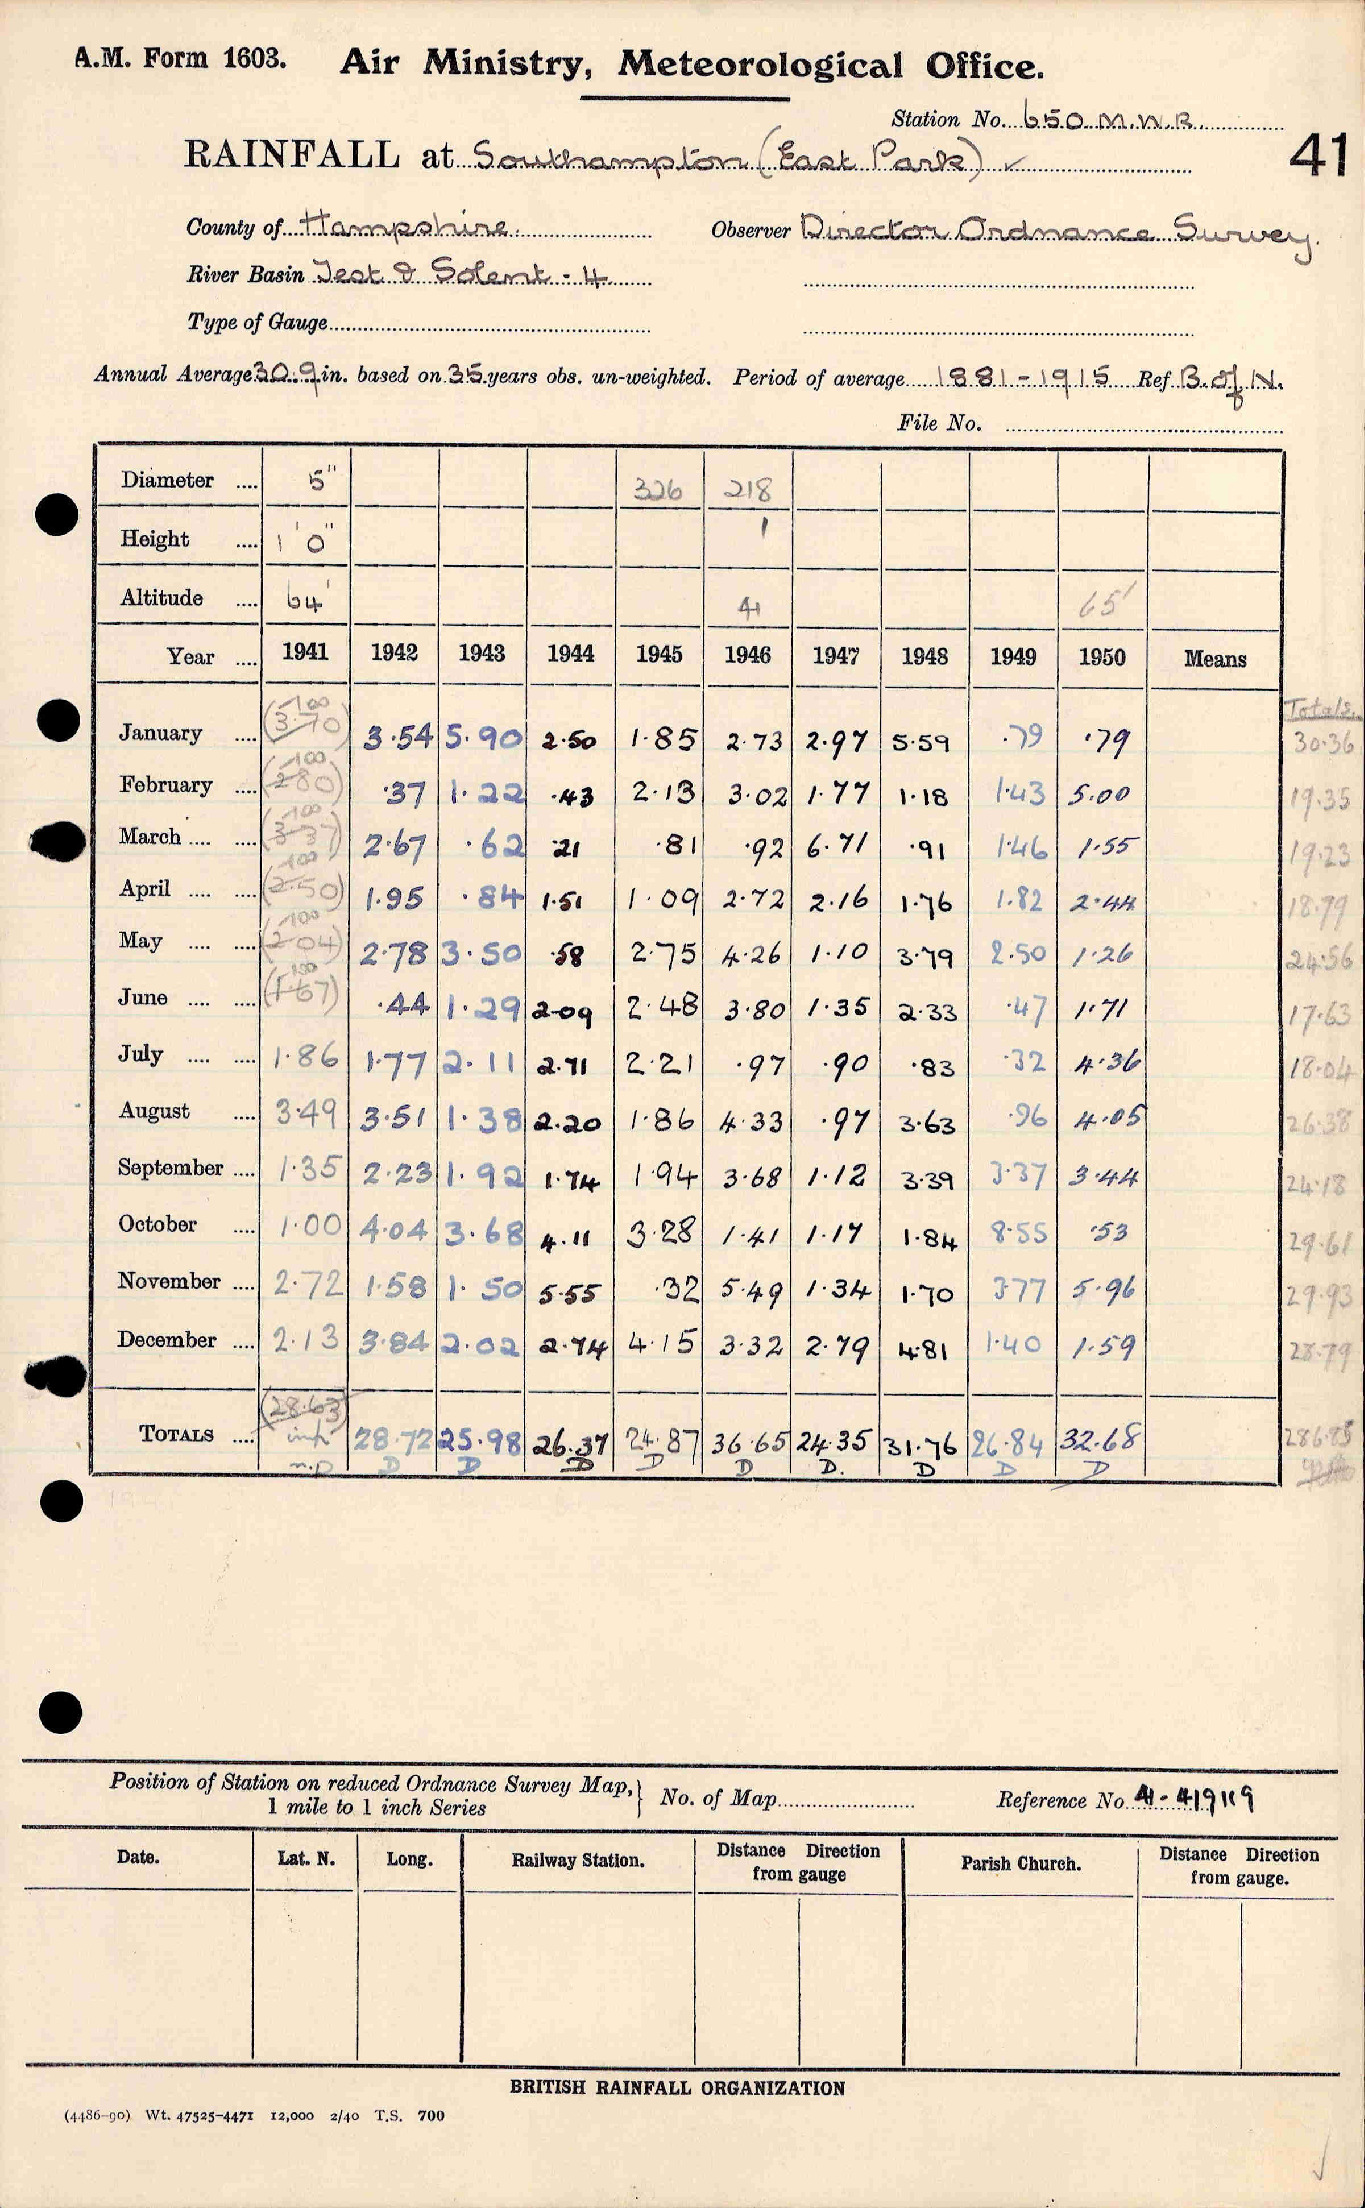 A.M. Form 1603. Air Ministry, Meteorological Office.
Station No. 650 M.W.R.
RAINFALL at Southampton (East Park) ✓
41
County of Hampshire. Observer Director Ordnance Survey.
River Basin Test & Solent - 4
Type of Gauge
Annual Average 30.9 in. based on 35 years obs. un-weighted. Period of average 1881-1915 Ref. B. of N.
File No.
Diameter .... 5" 326 218
Height .... 1' 0" 1
Altitude .... 64' 4 65'
Year .... 1941 1942 1943 1944 1945 1946 1947 1948 1949 1950 Means
Totals.
January .... (3.70) 3.54 5.90 2.50 1.85 2.73 2.97 5.59 .79 .79 30.36
February .... (2.80) .37 1.22 .43 2.13 3.02 1.77 1.18 1.43 5.00 19.35
March .... .... (3.37) 2.67 .62 .21 .81 .92 6.71 .91 1.46 1.55 19.23
April .... .... (2.50) 1.95 .84 1.51 1.09 2.72 2.16 1.76 1.82 2.44 18.79
May .... .... (2.04) 2.78 3.50 .58 2.75 4.26 1.10 3.79 2.50 1.26 24.56
June .... .... (1.67) .44 1.29 2.09 2.48 3.80 1.35 2.33 .47 1.71 17.63
July .... .... 1.86 1.77 2.11 2.71 2.21 .97 .90 .83 .32 4.36 18.04
August .... 3.49 3.51 1.38 2.20 1.86 4.33 .97 3.63 .96 4.05 26.38
September .... 1.35 2.23 1.92 1.74 1.94 3.68 1.12 3.39 3.37 3.44 24.18
October .... 1.00 4.04 3.68 4.11 3.28 1.41 1.17 1.84 8.55 .53 29.61
November .... 2.72 1.58 1.50 5.55 .32 5.49 1.34 1.70 3.77 5.96 29.93
December .... 2.13 3.84 2.02 2.74 4.15 3.32 2.79 4.81 1.40 1.59 28.79
(28.63)
TOTALS .... 28.72 25.98 26.37 24.87 36.65 24.35 31.76 26.84 32.68
n.D D D D D D D. D D D
Position of Station on reduced Ordnance Survey Map,
1 mile to 1 inch Series
No. of Map Reference No. 41-419119
Date. Lat. N. Long. Railway Station. Distance Direction from gauge Parish Church. Distance Direction from gauge.
BRITISH RAINFALL ORGANIZATION
(4486-90) Wt. 47525-4471 12,000 2/40 T.S. 700